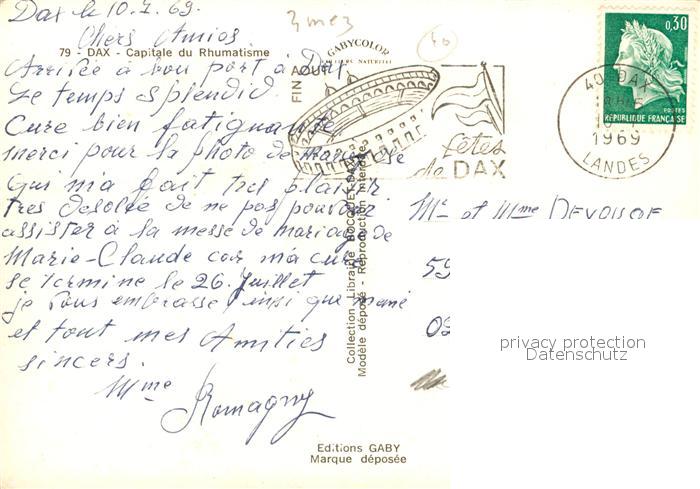 Dax le 10.7.69.
3 mez
40
Chers Amies
79 - DAX - Capitale du Rhumatisme
GABYCOLOR
COULEURS NATURELLES
Arrivée à bon port à Dax
le temps splendid.
Cure bien fatiguante
merci pour la photo de Marie
qui m'a fait très plaisir
très désolée de ne pas pouvoir
assister à la messe de mariage de
Marie-Claude car ma cure
se termine le 26 Juillet
je vous embrasse insi que mané
et tout mes Amities
sincers.
Mme Romagny
FIN AOUT
fêtes
de DAX
0,30
POSTES
REPUBLIQUE FRANÇAISE
40 DAX
10 - 7
1969
LANDES
Mr et Mme DEVOISOF
59
privacy protection
Datenschutz
Collection Librairie BOCQUET-DAX
Modèle déposé Reproduction interdite
Editions GABY
Marque déposée